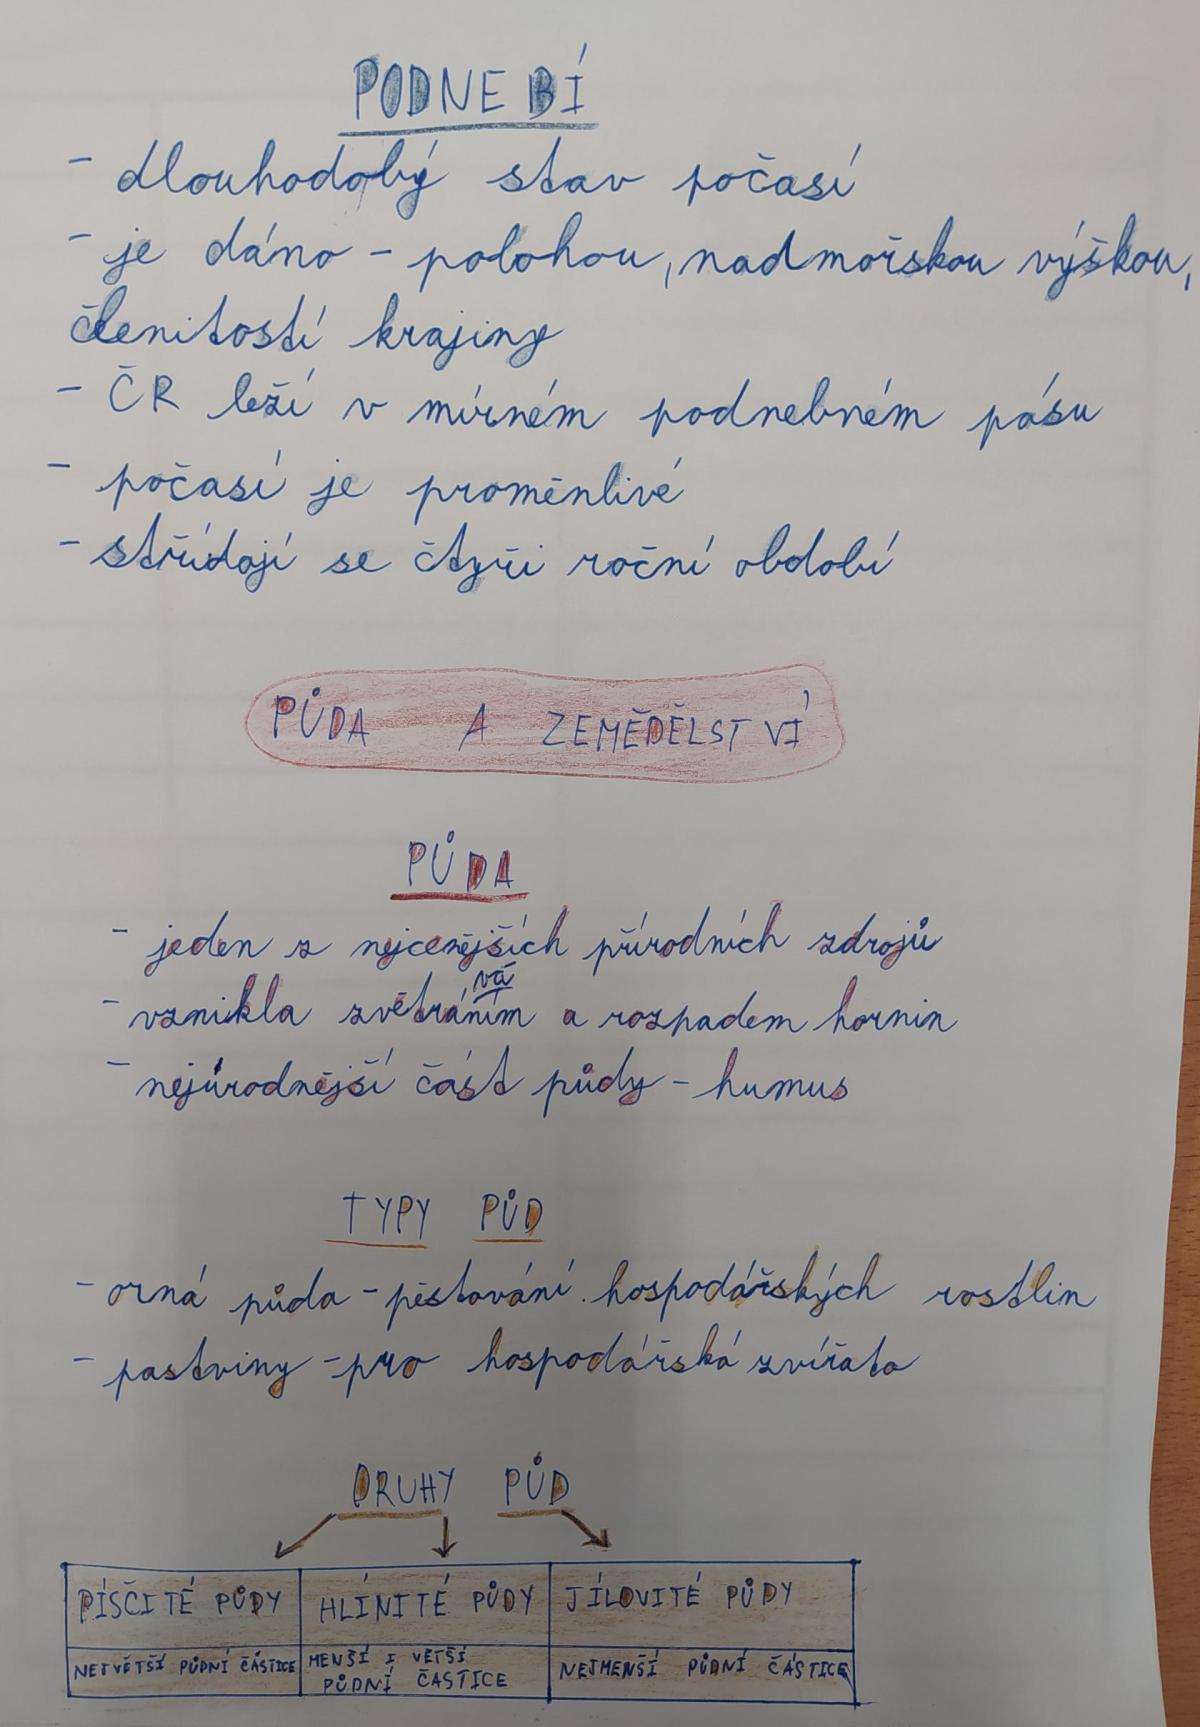 PODNEBÍ
- dlouhodobý stav počasí
- je dáno - polohou, nadmořskou výškou,
členitostí krajiny
- ČR leží v mírném podnebném pásu
- počasí je proměnlivé
- střídají se čtyři roční období
PŮDA A ZEMĚDĚLSTVÍ
PŮDA
- jeden z nejcenějších přírodních zdrojů
vá
- vznikla zvětráním a rozpadem hornin
- nejúrodnější část půdy - humus
TYPY PŮD
- orná půda - pěstování hospodářských rostlin
- pastviny - pro hospodářská zvířata
DRUHY PŮD
PÍSČITÉ PŮDY HLÍNITÉ PŮDY JÍLOVITÉ PŮDY
NEJVĚTŠÍ PŮDNÍ ČÁSTICE MENŠÍ I VĚTŠÍ PŮDNÍ ČASTICE NEJMENŠÍ PŮDNÍ ČÁSTICE